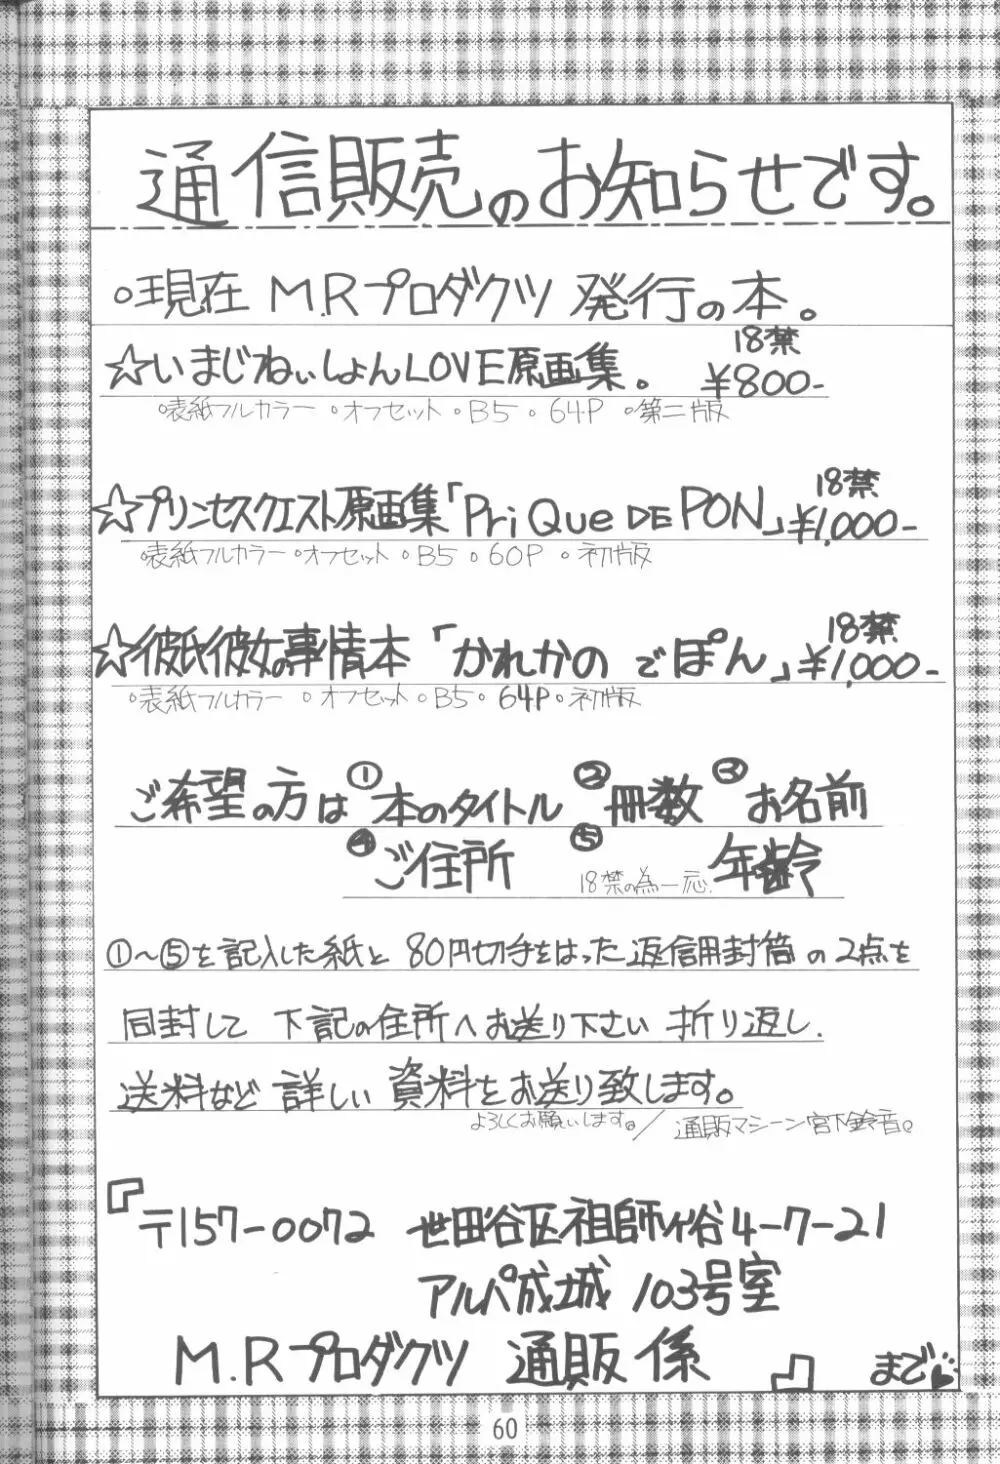 通信販売のお知らせです。
○現在 M.Rプロダクツ 発行の本。
18禁
☆いまじねぃしょんLOVE原画集。 ¥800-
○表紙フルカラー ○オフセット ○B5 ○64P ○第二版
18禁
☆プリンセスクエスト原画集「Pri Que DE PON」¥1,000-
○表紙フルカラー ○オフセット ○B5 ○60P ○初版
18禁
☆彼氏彼女の事情本「かれかの でぽん」¥1,000-
○表紙フルカラー ○オフセット ○B5 ○64P ○初版
ご希望の方は ①本のタイトル ②冊数 ③お名前
④ご住所 ⑤18禁の為一応.年齢
①〜⑤を記入した紙と 80円切手をはった返信用封筒の2点を
同封して 下記の住所へお送り下さい 折り返し.
送料など 詳しい 資料をお送り致します。
よろしくお願いします。/通販マシーン宮下鈴音。
『〒157-0072 世田谷区祖師ヶ谷4-7-21
アルパ成城 103号室
M.Rプロダクツ 通販係』まで
60